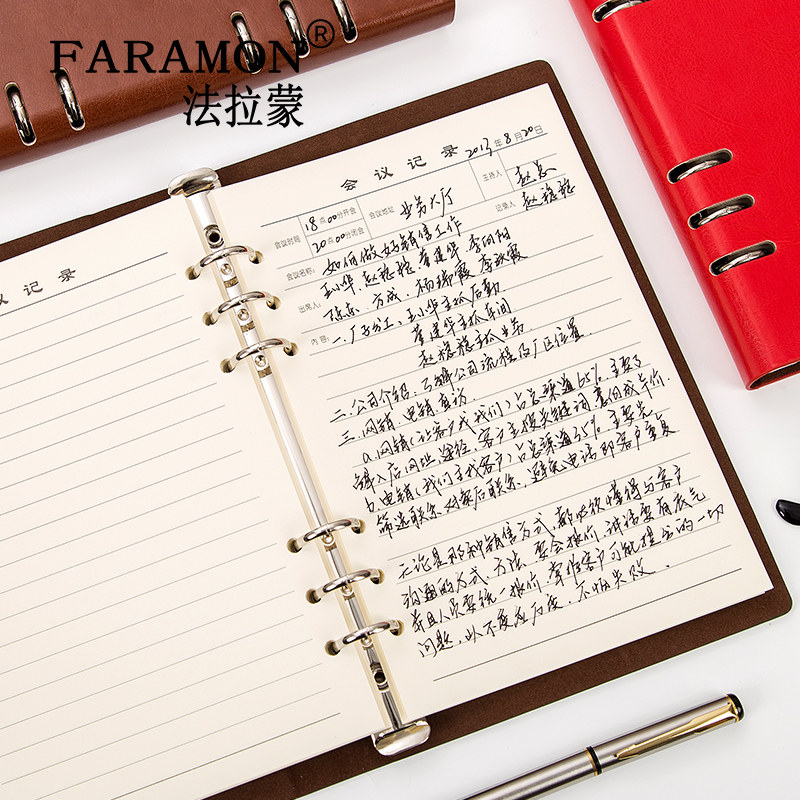 FARAMON®
法拉蒙
议记录
会议记录 2013年8月20日
会议时间 18点00分开会 会议地址 业务大厅 主持人 赵总
20点00分闭会 记录人 赵稳稳
会议名称: 如何做好销售工作
出席人: 王小华、赵稳稳 董建华 李向阳
陈东、方成、杨瑞霞 李秋霞
内容: 一、厂子分工、王小华主抓后勤
董建华主抓车间
赵稳稳主抓业务
二、公司介绍、了解公司流程及厂区位置.
三、网销、电销、直访.
a.网销(让客户找我们)占总渠道65%.主要了
解入店网址途径、客户主搜关键词、
b.电销(我们主找客户)占总渠道35%.主要先
筛选联系、对案后联系、避免电话
无论是那种销售方式,都必须懂得与客户
沟通的方式、方法、要会报价、讲话要有底气
并且人员要统一报价,掌握客户可能提出的一切
问题,以不变应万变,不怕失败.